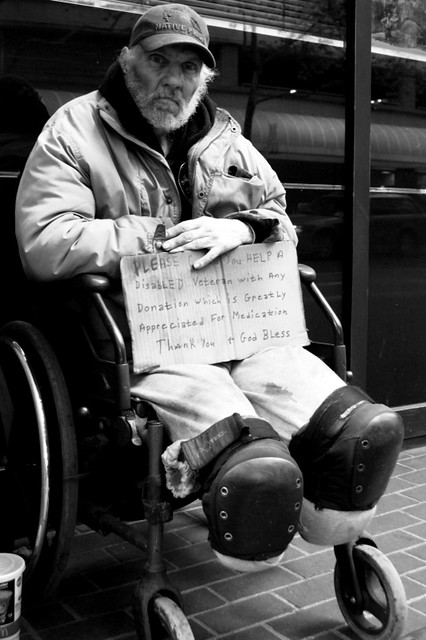 NATIVE
PLEASE You HELP A
DisabLED Veteran with Any
Donation which is Greatly
Appreciated For Medication
Thank You + God Bless